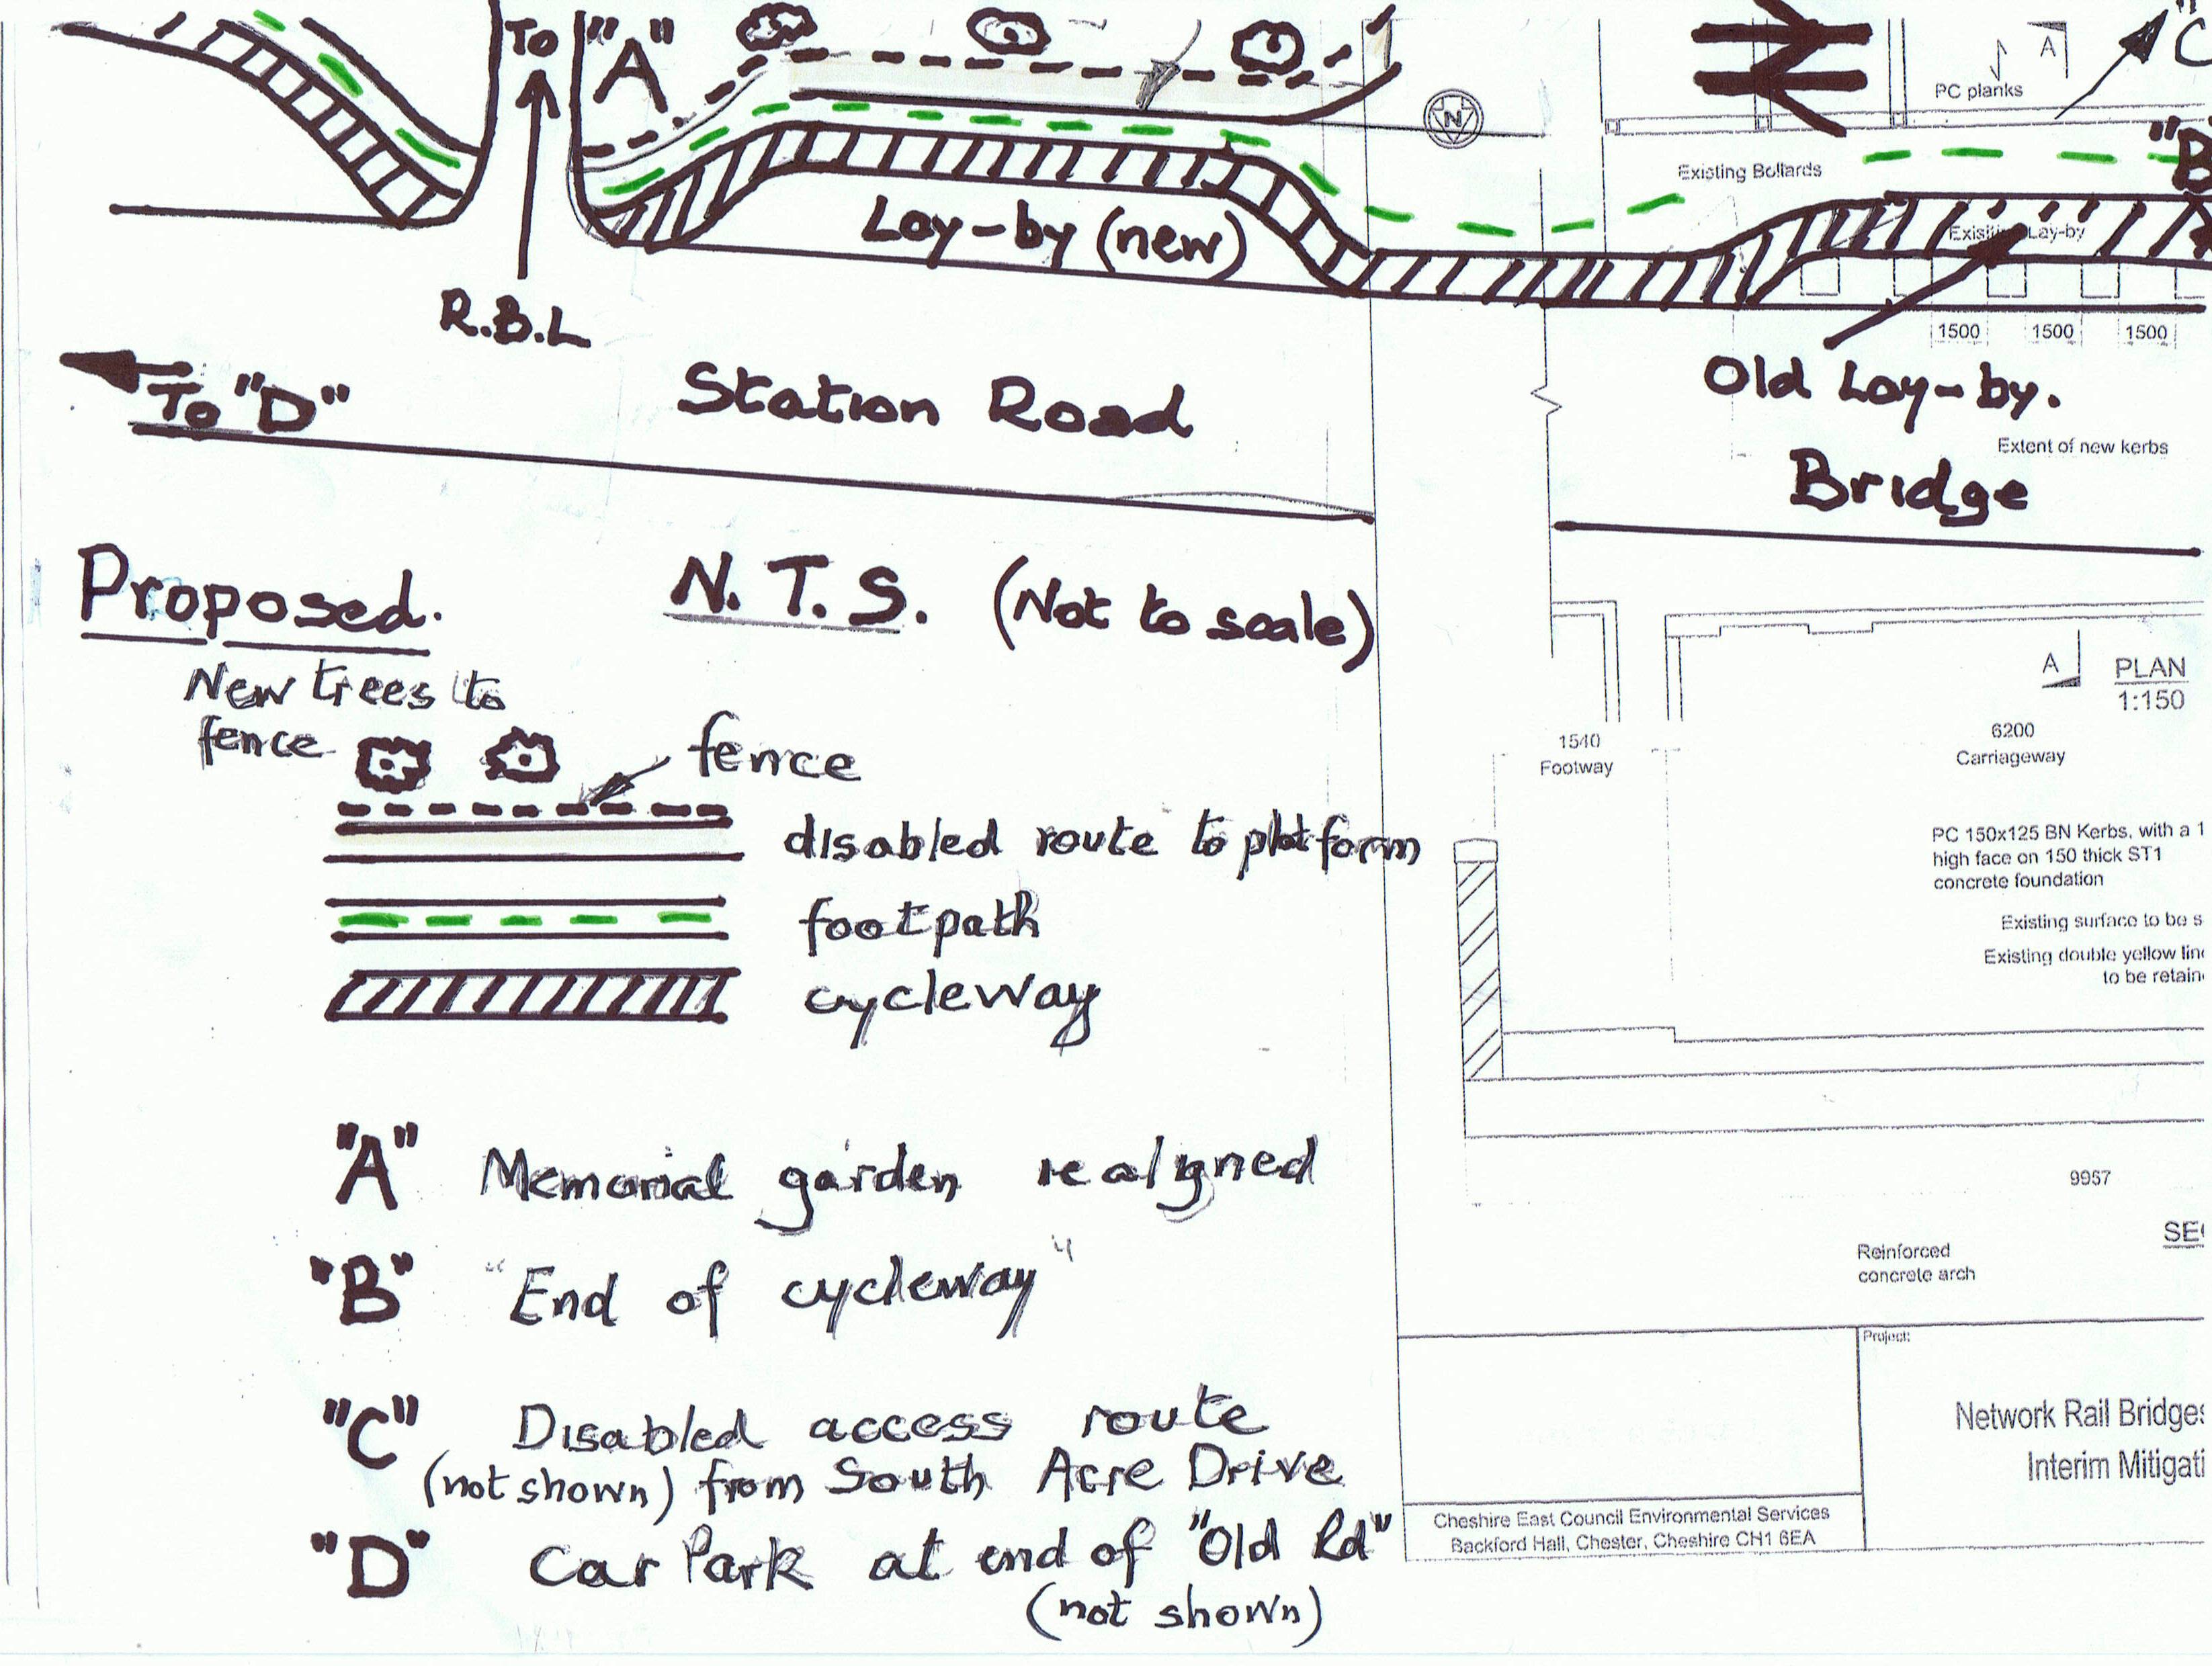 To
"A"
N
PC planks
A
"C
"B
Existing Bollards
Lay-by (new)
Lay-by
R.B.L
1500
1500
1500
To "D"
Station Road
Old Lay-by.
Extent of new kerbs
Bridge
Proposed.
N.T.S. (Not to scale)
New trees to
fence
fence
disabled route to platform
footpath
cycleway
A
PLAN
1:150
1540
Footway
6200
Carriageway
PC 150x125 BN Kerbs, with a 1
high face on 150 thick ST1
concrete foundation
Existing surface to be s
Existing double yellow lin
to be retain
9957
SE
Reinforced
concrete arch
"A" Memorial garden realigned
"B" "End of cycleway"
"C" Disabled access route
(not shown) from South Acre Drive
"D" Car Park at end of "Old Rd"
(not shown)
Project:
Network Rail Bridges
Interim Mitigati
Cheshire East Council Environmental Services
Backford Hall, Chester, Cheshire CH1 6EA